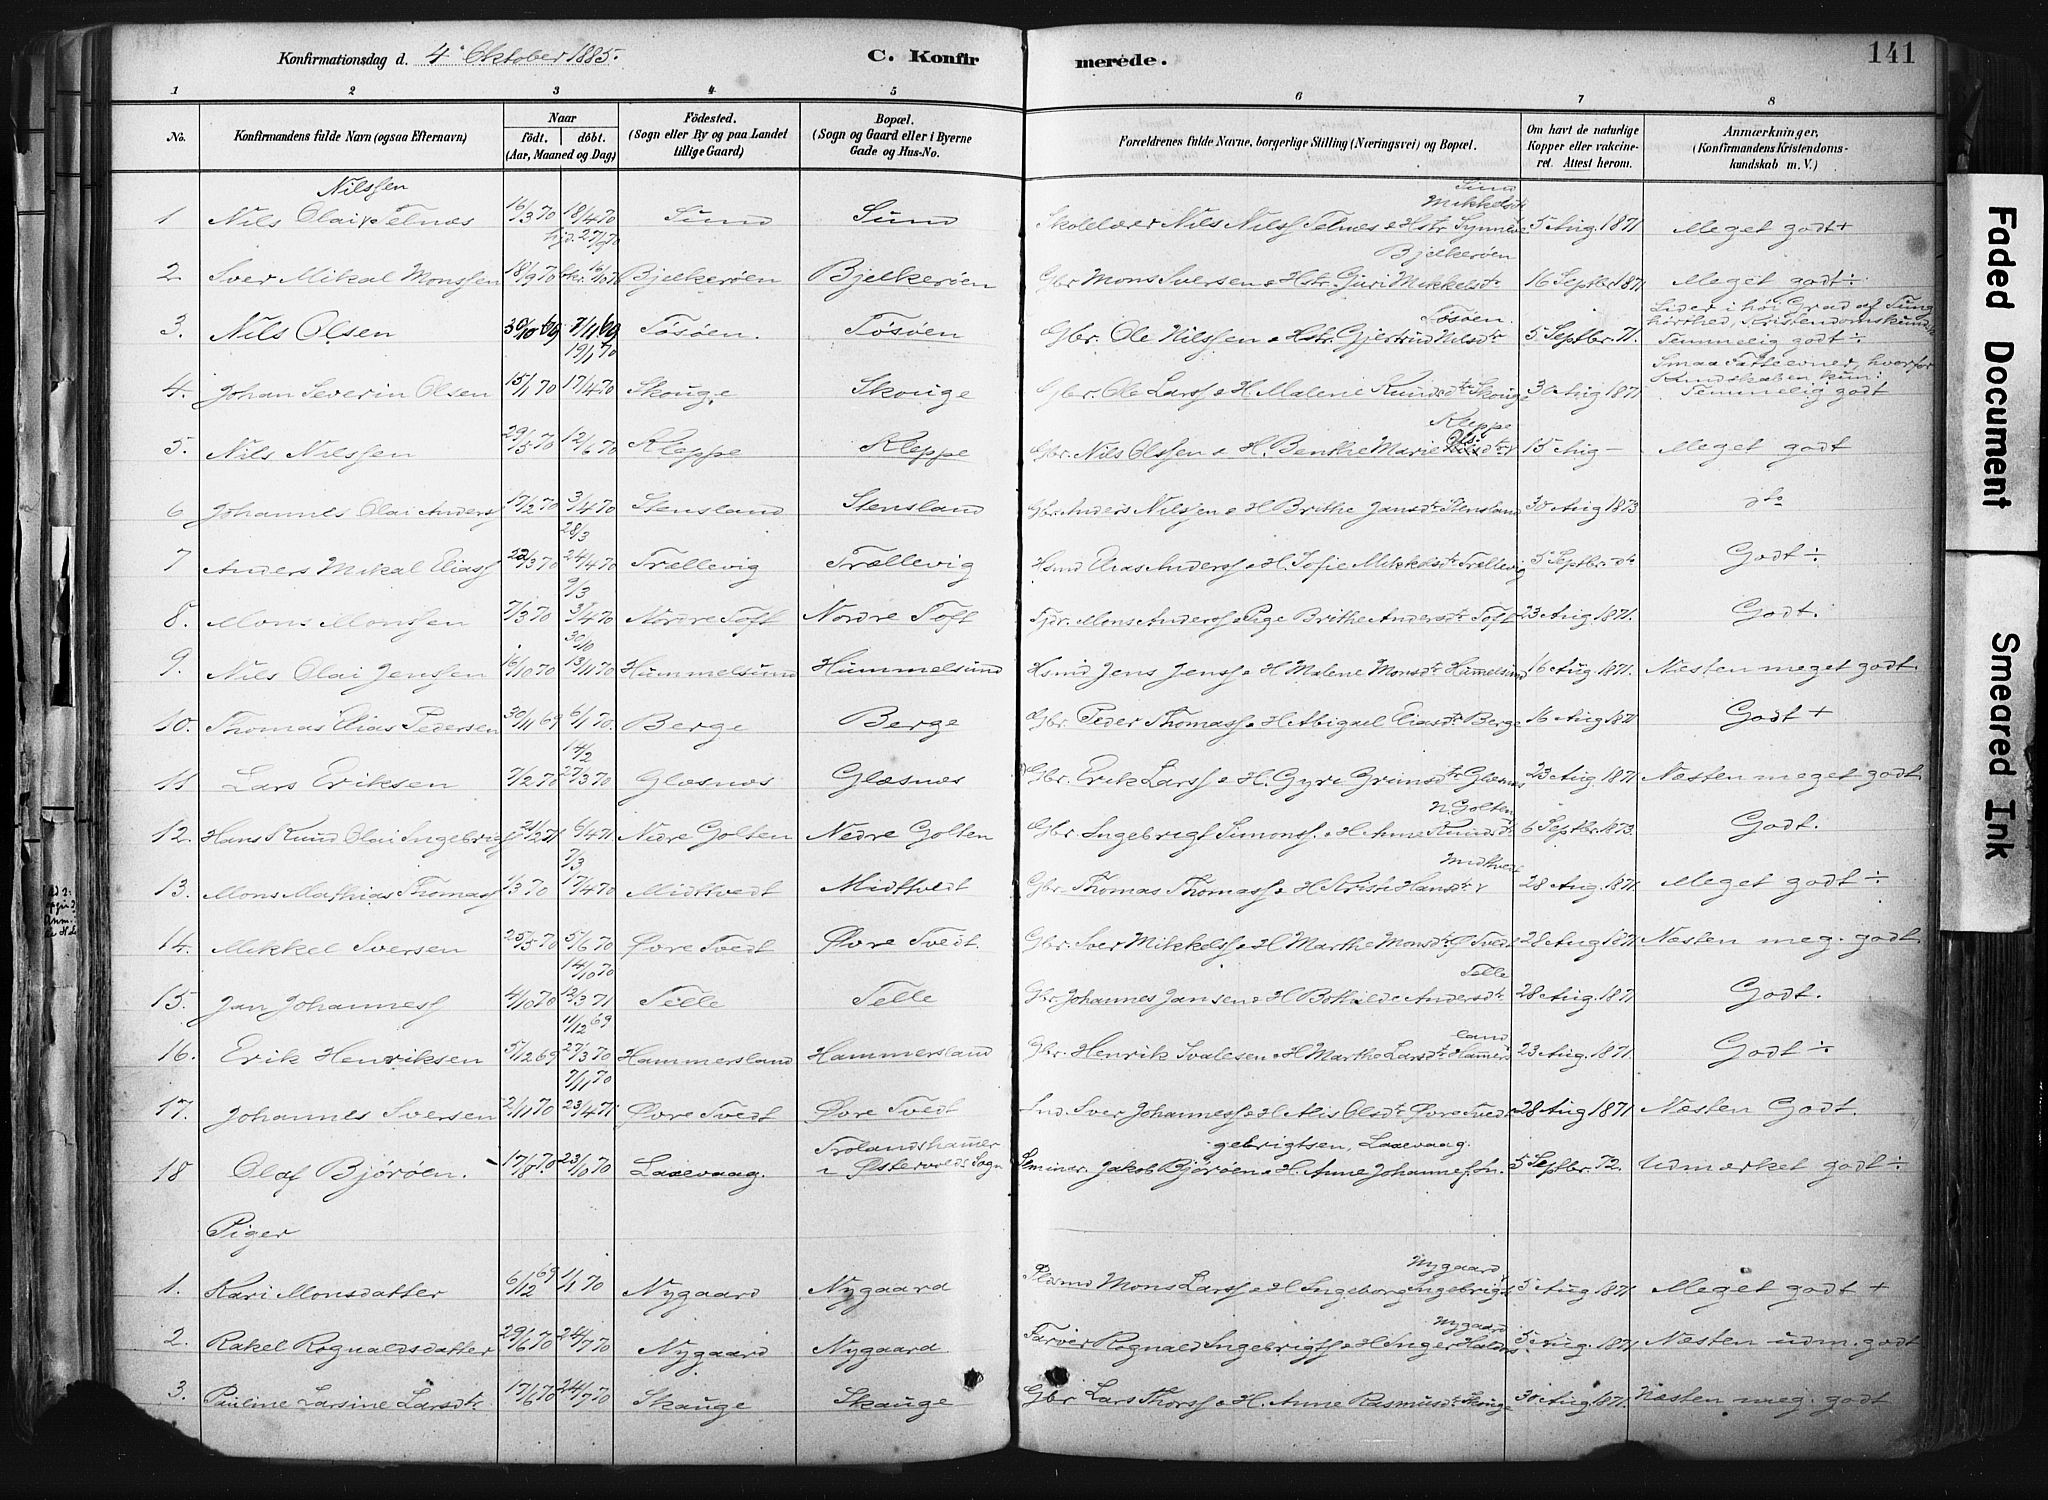 Konfirmationsdag d. 4' Oktober 1885.
C. Konfirmerede.
141
1 2 3 4 5 6 7 8
No.
Konfirmandens fulde Navn (ogsaa Efternavn)
Naar
födt. döbt.
(Aar, Maaned og Dag)
Födested.
(Sogn eller By og paa Landet
tillige Gaard)
Bopæl.
(Sogn og Gaard eller i Byerne
Gade og Hus-No.
Forældrenes fulde Navne, borgerlige Stilling (Næringsvei) og Bopæl.
Om havt de naturlige
Kopper eller vakcine-
ret. Attest herom.
Anmærkninger,
(Konfirmandens Kristendoms-
kundskab m. V.)
Nilssen Sund Mikkelsdtr
1 Nils Olai Telnæs 16/3 70 18/4 70 Sund Sund Skolelærer Nils Nilss Telnæs & Hstr Synneve 5 Aug. 1871 Meget godt +
hjd. 27/3 70 Bjelkerøen
2. Sver Mikal Monssen 18/9 70 Bjelkerøen Bjelkerøen Gbr Mons Sversen & Hstr. Guri Mikkelsdtr 16 Septbr 1871 Meget godt ÷
Tøsøen Lider i høi Grad af Tung-
3. Nils Olsen 30/10 69 7/11 69 Tøsøen. Tøsøen Gbr. Ole Nilssen & Hstr. Gjertrud Nilsdtr 5 Septbr. 71. hørthed, Kristendomskundsk.
19/1 70 Temmelig godt ÷
Smaa Fatteevner, hvorfor
4. Johan Severin Olsen 15/1 70 17/4 70 Skouge Skouge Gbr. Ole Larss & H. Malene Knudsdtr Skouge 30 Aug 1871 Kundskaben kun:
Temmelig godt
Kleppe
5. Nils Nilssen 29/5 70 12/6 70 Kleppe Kleppe Gbr. Nils Olssen & H. Benthe Marie Olsdtr 15 Aug — Meget godt
6 Johannes Olai Anderss 17/2 70 3/4 70 Stensland Stensland Gbr Anders Nilssen & H Brithe Jansdtr Stensland 30 Aug 1873 do
28/3
7 Anders Mikal Eliass 22/3 70 24/4 70 Trællevig Trællevig Hsmd Elias Anderss & H. Sofie Mikkelsdtr Trællevig 5 Septbr. do Godt ÷
9/3
8. Mons Monssen 7/3 70 3/4 70 Nordre Toft Nordre Toft Mons Anderss & Pige Brithe Andersdtr Toft 23 Aug 1871. Godt.
30/10
9. Nils Olai Jenssen 16/10 70 13/11 70 Hummelsund Hummelsund Hsmd Jens Jenss & H Malene Monsdtr Hummelsund 16 Aug. 1871. Næsten meget godt.
10. Thomas Elias Pedersen 30/11 69 6/1 70. Berge Berge Gbr Peder Thomass & H. Abigael Eliasdtr Berge 16 Aug 1871 Godt +
14/2
11 Lars Eriksen 7/2 70 27/3 70 Glæsnæs Glæsnæs Gbr. Erik Larss & H. Gyre Brimsdtr Glæsnæs 23 Aug. 1871 Næsten meget godt
N Golten
12. Hans Knud Olai Ingebrigts 21/2 71 6/4 71 Nedre Golten Nedre Golten Gbr Ingebrigt Simonss. & H Anne Knudsdtr 6 Septbr. 1873. Godt.
7/3 Midttvedt
13. Mons Mathias Thomass 1/3 70 17/4 70 Midttvedt Midttvedt Gbr. Thomas Thomass & H Kristi Hansdtr 28 Aug. 1871. Meget godt ÷
14. Mikkel Sversen 25/5 70 5/6 70 Øvre Tvedt Øvre Tvedt. Gbr. Sver Mikkelss & H Marthe Monsdtr Ø Tvedt 28 Aug 1871 Næsten meg. godt
14/10 70 Telle
15. Jan Johanness 4/10 70 12/3 71 Telle Telle Gbr Johannes Jansen & H Bothilde Andersdtr 28 Aug. 1871 Godt.
11/12 69 land
16. Erik Henriksen 5/12 69 27/3 70 Hammersland Hammersland Gbr. Henrik Ivalesen & H Marthe Larsdtr Hamers 23 Aug. 1871. Godt ÷
7/11 70
17. Johannes Sversen 2/11 70 23/4 71 Øvre Tvedt Øvre Tvedt Ind. Sver Johanness & H Alis Olsdtr Øvre Tvedt 28 Aug 1871 Næsten Godt.
Trolandshamer gebrigtsen, Laxevaag.
18 Olaf Bjørøen. 17/8 70 23/10 70 Laxevaag. i Østervolds Sogn Seminar. Jakob Bjørøen & H. Anne Johanness. In- 5 Septbr. 72. Udmerket godt ÷
Piger
Nygaard
1. Kari Monsdatter 6/12 69 1/1 70 Nygaard Nygaard Pladsmd Mons Larss & H Ingeborg Ingebrigts 5 Aug 1871 Meget godt +
Nygaard
2. Rakel Rognaldsdatter 29/6 70 24/7 70 Nygaard Nygaard Farver Rognald Ingebrigtss & H Inger Haldors 5. Aug. 1871 Næsten udm. godt
3. Pauline Larsine Larsdtr 17/6 70 24/7 70 Skauge Skauge Gbr Lars Thorss & H. Anne Rasmusdtr Skouge 30 Aug 1871. Næsten meg. godt
Faded Document
Smeared Ink